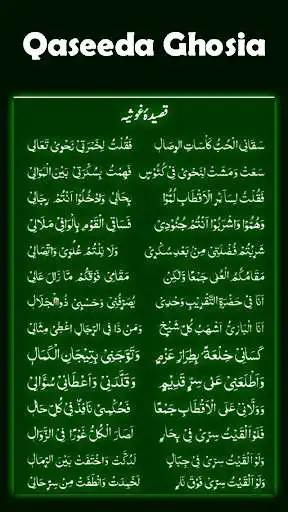 Qaseeda Ghosia
قصیدۂ غوثیہ
سَقَانِي الْحُبُّ كَأْسَاتِ الْوِصَالِ فَقُلْتُ لِخَمْرَتِيْ نَحْوِيْ تَعَالِيْ
سَعَتْ وَمَشَتْ لِنَحْوِيْ فِيْ كُئُوْسٍ فَهِمْتُ بِسُكْرَتِيْ بَيْنَ الْمَوَالِيْ
فَقُلْتُ لِسَآئِرِ الْاَقْطَابِ لُمُّوْا بِحَالِيْ وَادْخُلُوْا اَنْتُمْ رِجَالِيْ
وَهُمُّوْا وَاشْرَبُوْا اَنْتُمْ جُنُوْدِيْ فَسَاقِي الْقَوْمِ بِالْوَافِيْ مَلَالِيْ
شَرِبْتُمْ فُضْلَتِيْ مِنْ بَعْدِ سُكْرِيْ وَلَا نِلْتُمْ عُلُوِّيْ وَاتِّصَالِيْ
مَقَامُكُمُ الْعُلٰى جَمْعًا وَّلٰكِنْ مَقَامِيْ فَوْقَكُمْ مَا زَالَ عَالِيْ
اَنَا فِيْ حَضْرَةِ التَّقْرِيْبِ وَحْدِيْ يُصَرِّفُنِيْ وَحَسْبِيْ ذُو الْجَلَالِ
اَنَا الْبَازِيُّ اَشْهَبُ كُلِّ شَيْخٍ وَمَنْ ذَا فِي الرِّجَالِ اُعْطِيَ مِثَالِيْ
كَسَانِيْ خِلْعَةً بِطِرَازِ عَزْمٍ وَتَوَّجَنِيْ بِتِيْجَانِ الْكَمَالِ
وَاَطْلَعَنِيْ عَلٰى سِرٍّ قَدِيْمٍ وَقَلَّدَنِيْ وَاَعْطَانِيْ سُؤَالِيْ
وَوَلَّانِيْ عَلَى الْاَقْطَابِ جَمْعًا فَحُكْمِيْ نَافِذٌ فِيْ كُلِّ حَالِ
فَلَوْ اَلْقَيْتُ سِرِّيْ فِيْ بِحَارٍ لَصَارَ الْكُلُّ غَوْرًا فِي الزَّوَالِ
وَلَوْ اَلْقَيْتُ سِرِّيْ فِيْ جِبَالٍ لَدُكَّتْ وَاخْتَفَتْ بَيْنَ الرِّمَالِ
وَلَوْ اَلْقَيْتُ سِرِّيْ فَوْقَ نَارٍ لَخَمِدَتْ وَانْطَفَتْ مِنْ سِرِّ حَالِيْ